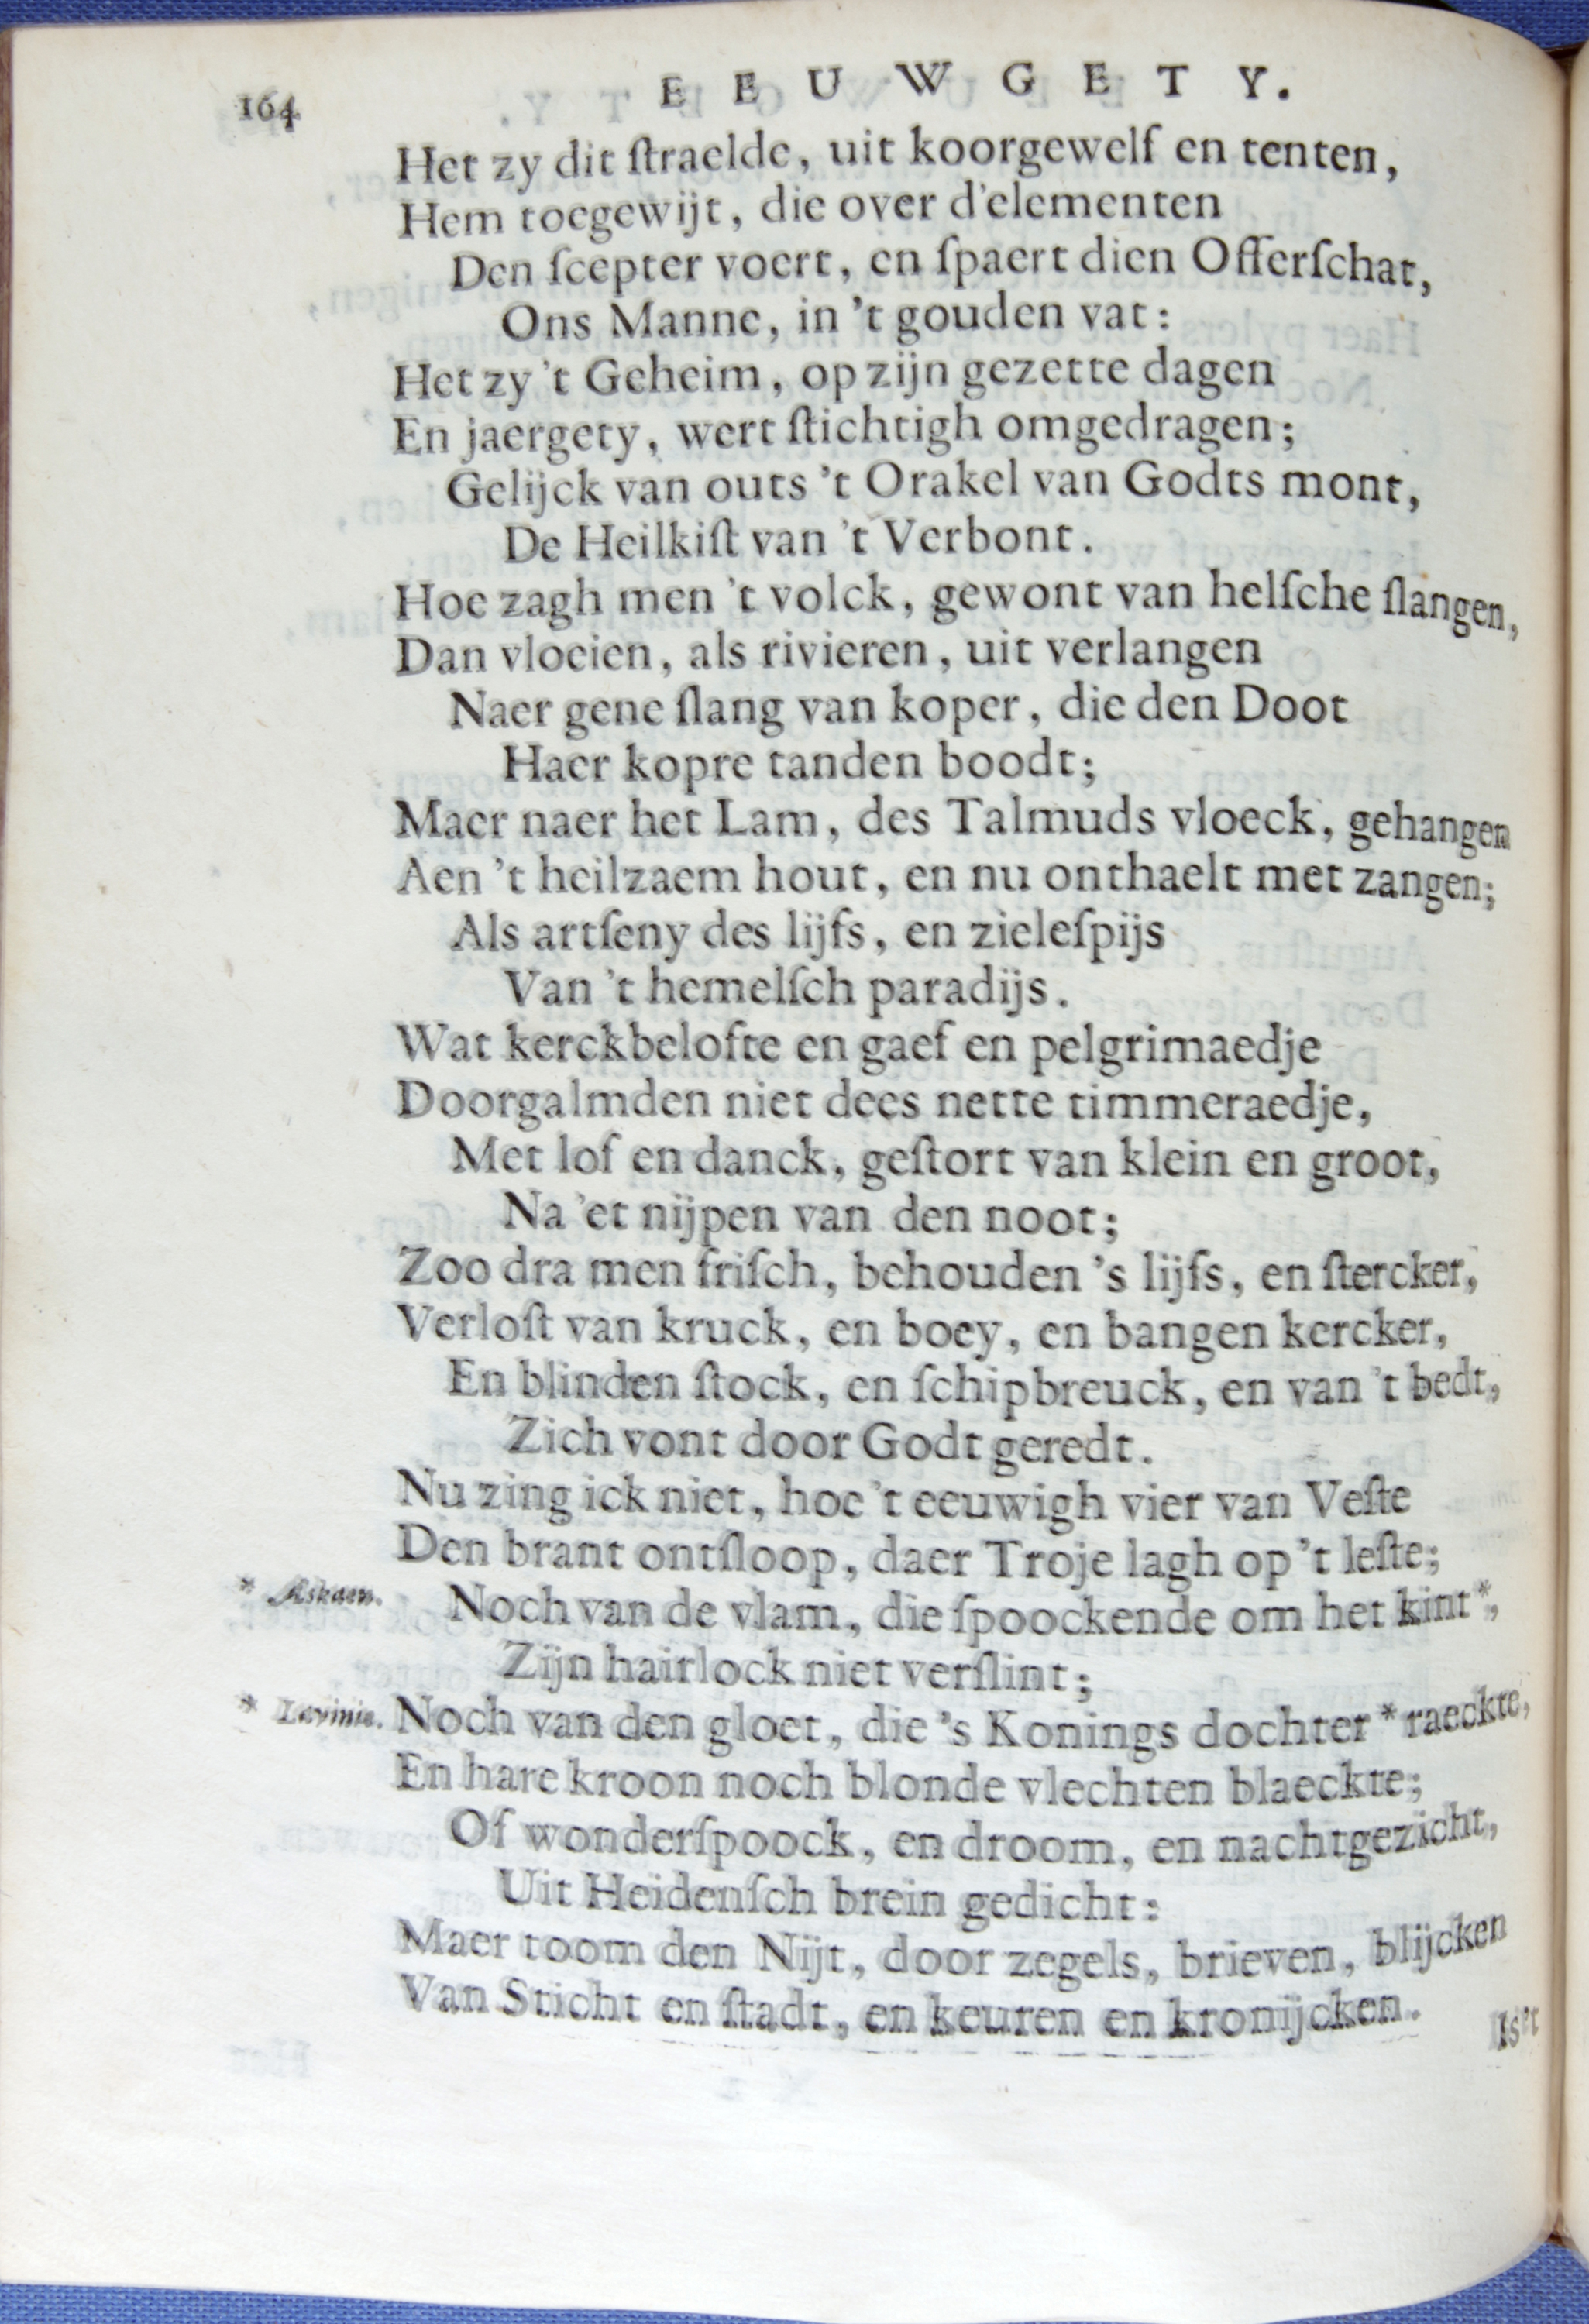 164
EEUWGETY.
Het zy dit ſtraelde, uit koorgewelf en tenten,
Hem toegewijt, die over d'elementen
Den ſcepter voert, en ſpaert dien Offerſchat,
Ons Manne, in 't gouden vat:
Het zy 't Geheim, op zijn gezette dagen
En jaergety, wert ſtichtigh omgedragen;
Gelijck van outs 't Orakel van Godts mont,
De Heilkiſt van 't Verbont.
Hoe zagh men 't volck, gewont van helſche ſlangen,
Dan vloeien, als rivieren, uit verlangen
Naer gene ſlang van koper, die den Doot
Haer kopre tanden boodt;
Maer naer het Lam, des Talmuds vloeck, gehangen
Aen 't heilzaem hout, en nu onthaelt met zangen;
Als artſeny des lijfs, en zieleſpijs
Van 't hemelſch paradijs.
Wat kerckbelofte en gaef en pelgrimaedje
Doorgalmden niet dees nette timmeraedje,
Met lof en danck, geſtort van klein en groot,
Na 'et nijpen van den noot;
Zoo dra men friſch, behouden 's lijfs, en ſtercker,
Verloſt van kruck, en boey, en bangen kercker,
En blinden ſtock, en ſchipbreuck, en van 't bedt,
Zich vont door Godt geredt.
Nu zing ick niet, hoe 't eeuwigh vier van Veſte
Den brant ontſloop, daer Troje lagh op 't leſte;
* Askaen.
Noch van de vlam, die ſpoockende om het kint*,
Zijn hairlock niet verſlint;
* Lavinie.
Noch van den gloet, die 's Konings dochter * raeckte,
En hare kroon noch blonde vlechten blaeckte;
Of wonderſpoock, en droom, en nachtgezicht,
Uit Heidenſch brein gedicht:
Maer toom den Nijt, door zegels, brieven, blijcken
Van Sticht en ſtadt, en keuren en kronijcken.
Is't